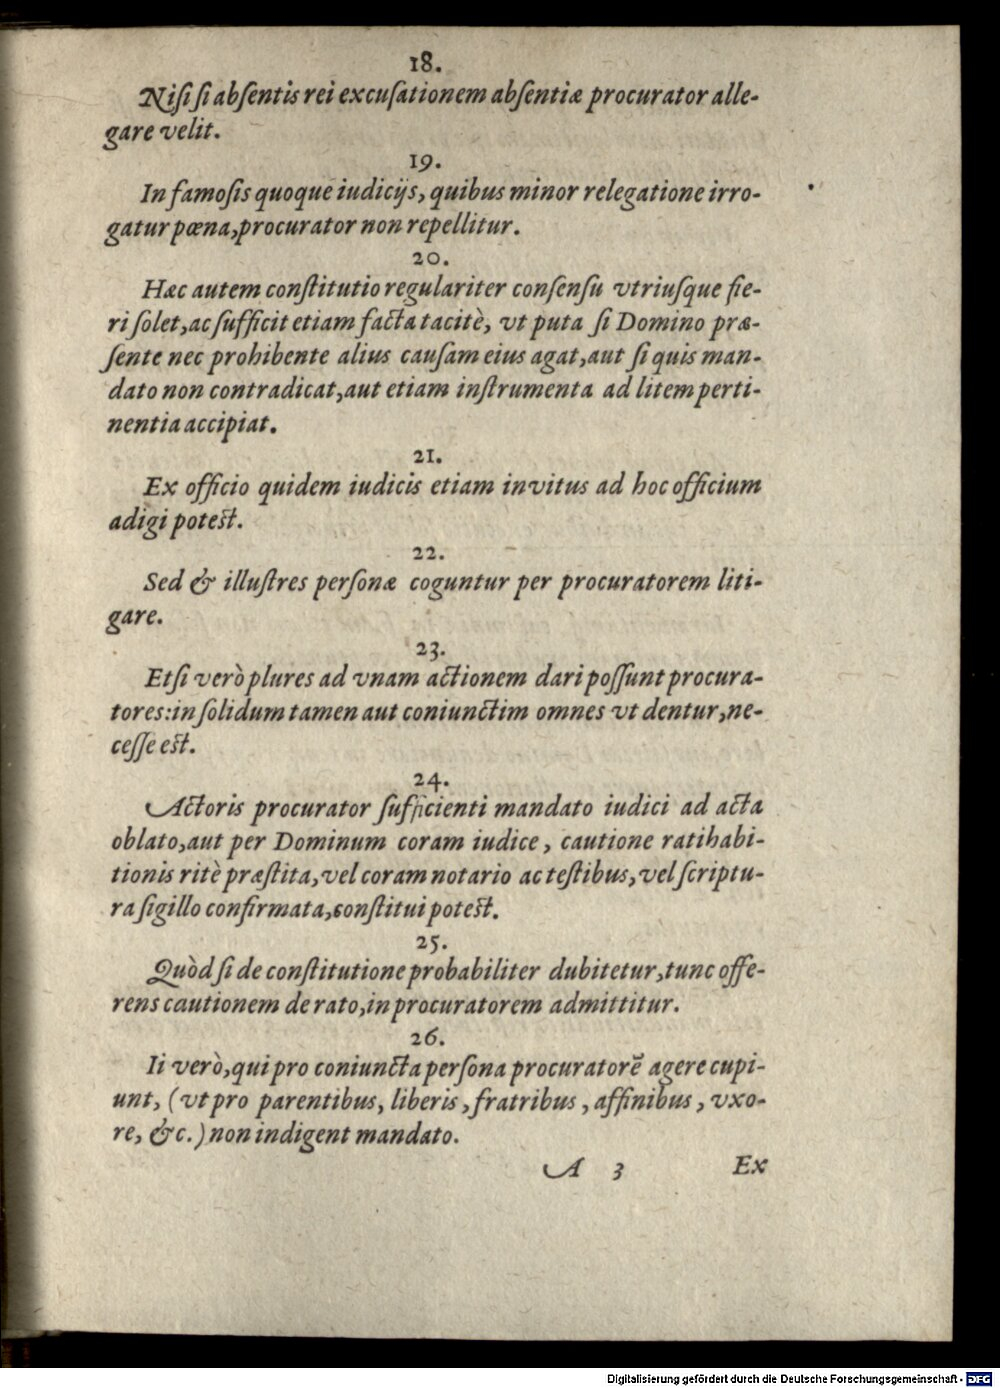 18.
Niſi ſi abſentis rei excuſationem abſentiæ procurator alle-
gare velit.
19.
In famoſis quoque iudicijs, quibus minor relegatione irro-
gatur pœna, procurator non repellitur.
20.
Hæc autem conſtitutio regulariter conſenſu vtriuſque fie-
ri ſolet, ac ſufficit etiam facta tacitè, vt puta ſi Domino præ-
ſente nec prohibente alius cauſam eius agat, aut ſi quis man-
dato non contradicat, aut etiam inſtrumenta ad litem perti-
nentia accipiat.
21.
Ex officio quidem iudicis etiam invitus ad hoc officium
adigi poteſt.
22.
Sed & illuſtres perſonæ coguntur per procuratorem liti-
gare.
23.
Etſi verò plures ad vnam actionem dari poſſunt procura-
tores: in ſolidum tamen aut coniunctim omnes vt dentur, ne-
ceſſe eſt.
24.
Actoris procurator ſufficienti mandato iudici ad acta
oblato, aut per Dominum coram iudice, cautione ratihabi-
tionis ritè præſtita, vel coram notario ac teſtibus, vel ſcriptu-
ra ſigillo confirmata, conſtitui poteſt.
25.
Quòd ſi de conſtitutione probabiliter dubitetur, tunc offe-
rens cautionem de rato, in procuratorem admittitur.
26.
Ii verò, qui pro coniuncta perſona procuratorē agere cupi-
unt, (vt pro parentibus, liberis, fratribus, affinibus, vxo-
re, &c.) non indigent mandato.
A 3 Ex
Digitalisierung gefördert durch die Deutsche Forschungsgemeinschaft - DFG